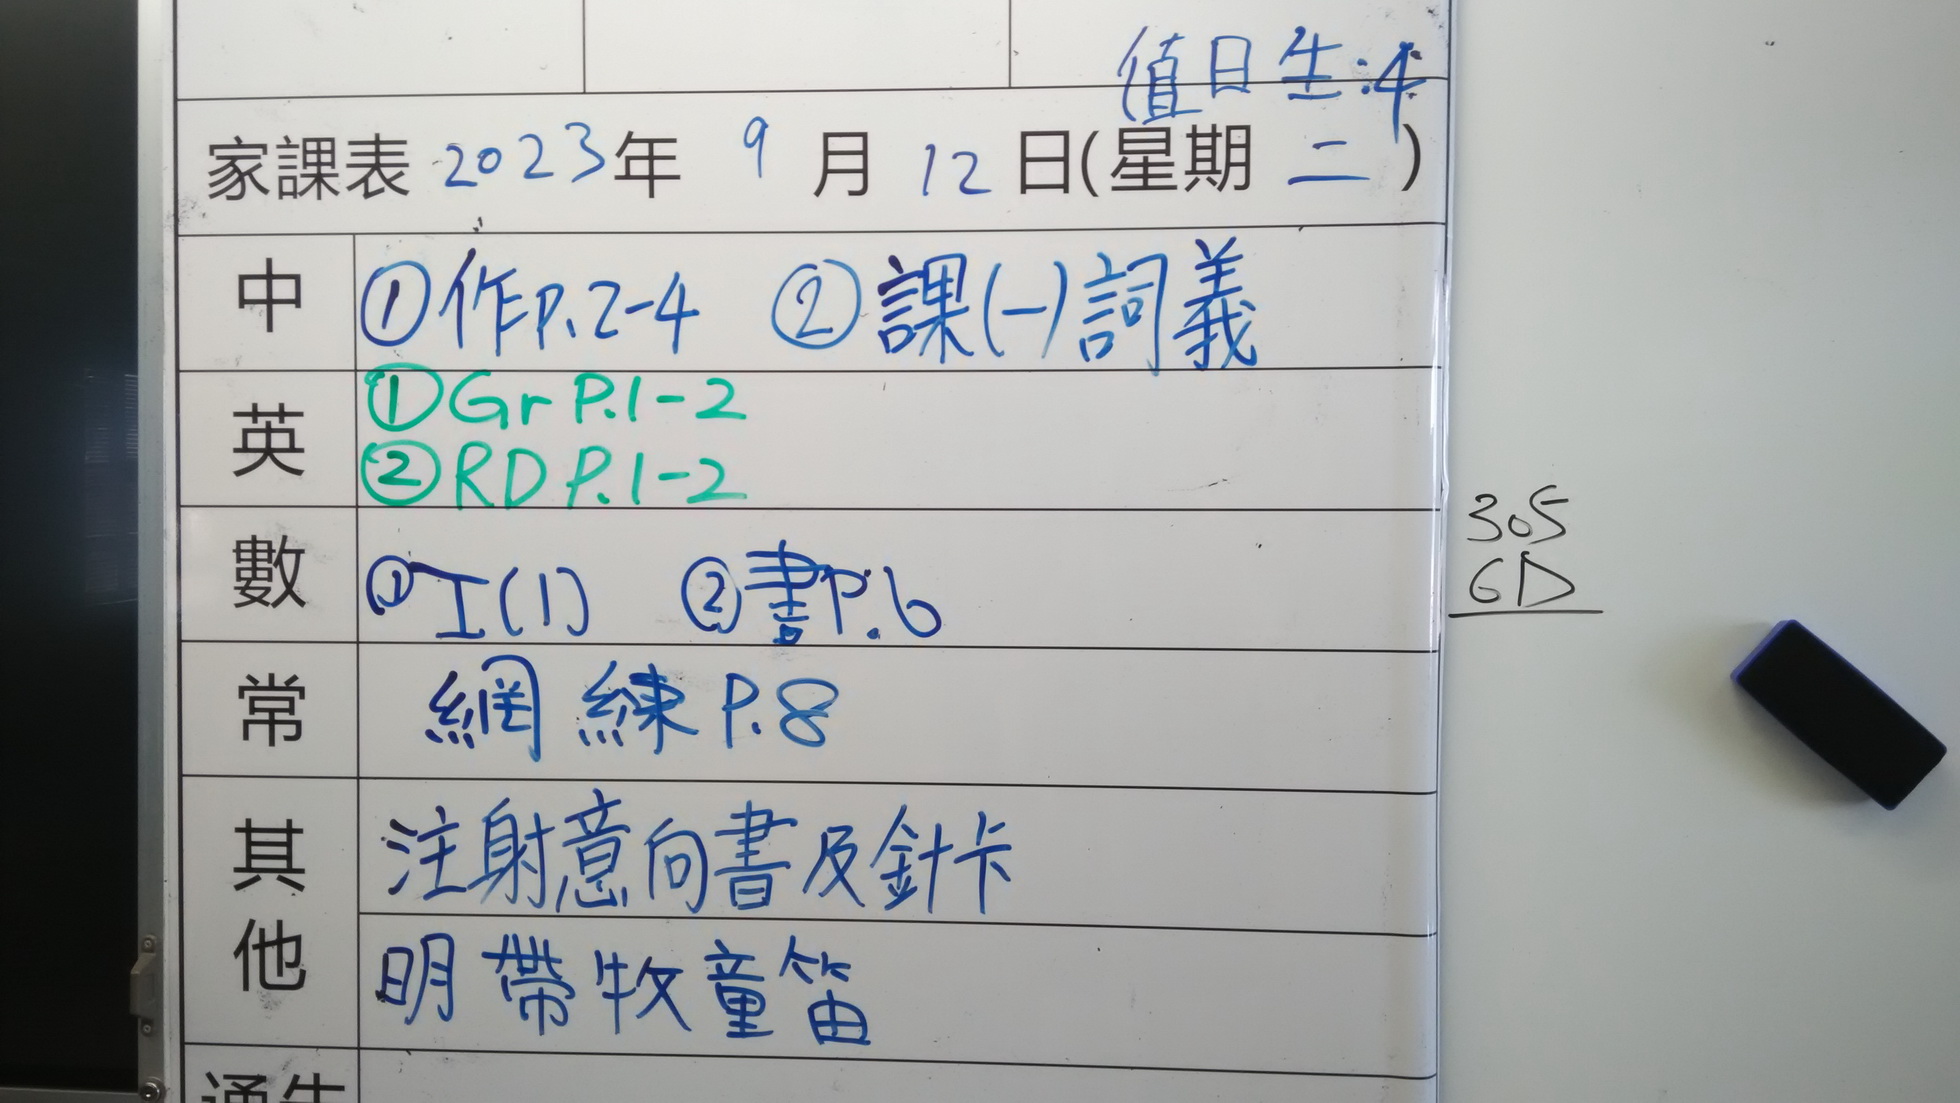 值日生:4
家課表 2023年 9月 12日(星期 二)
中 ①作P.2-4 ②課(一)詞義
英 ①Gr P.1-2
②RD P.1-2
數 ①工(1) ②書P.6
常 網練P.8
其他 注射意向書及針卡
明帶牧童笛
通告
305
GD